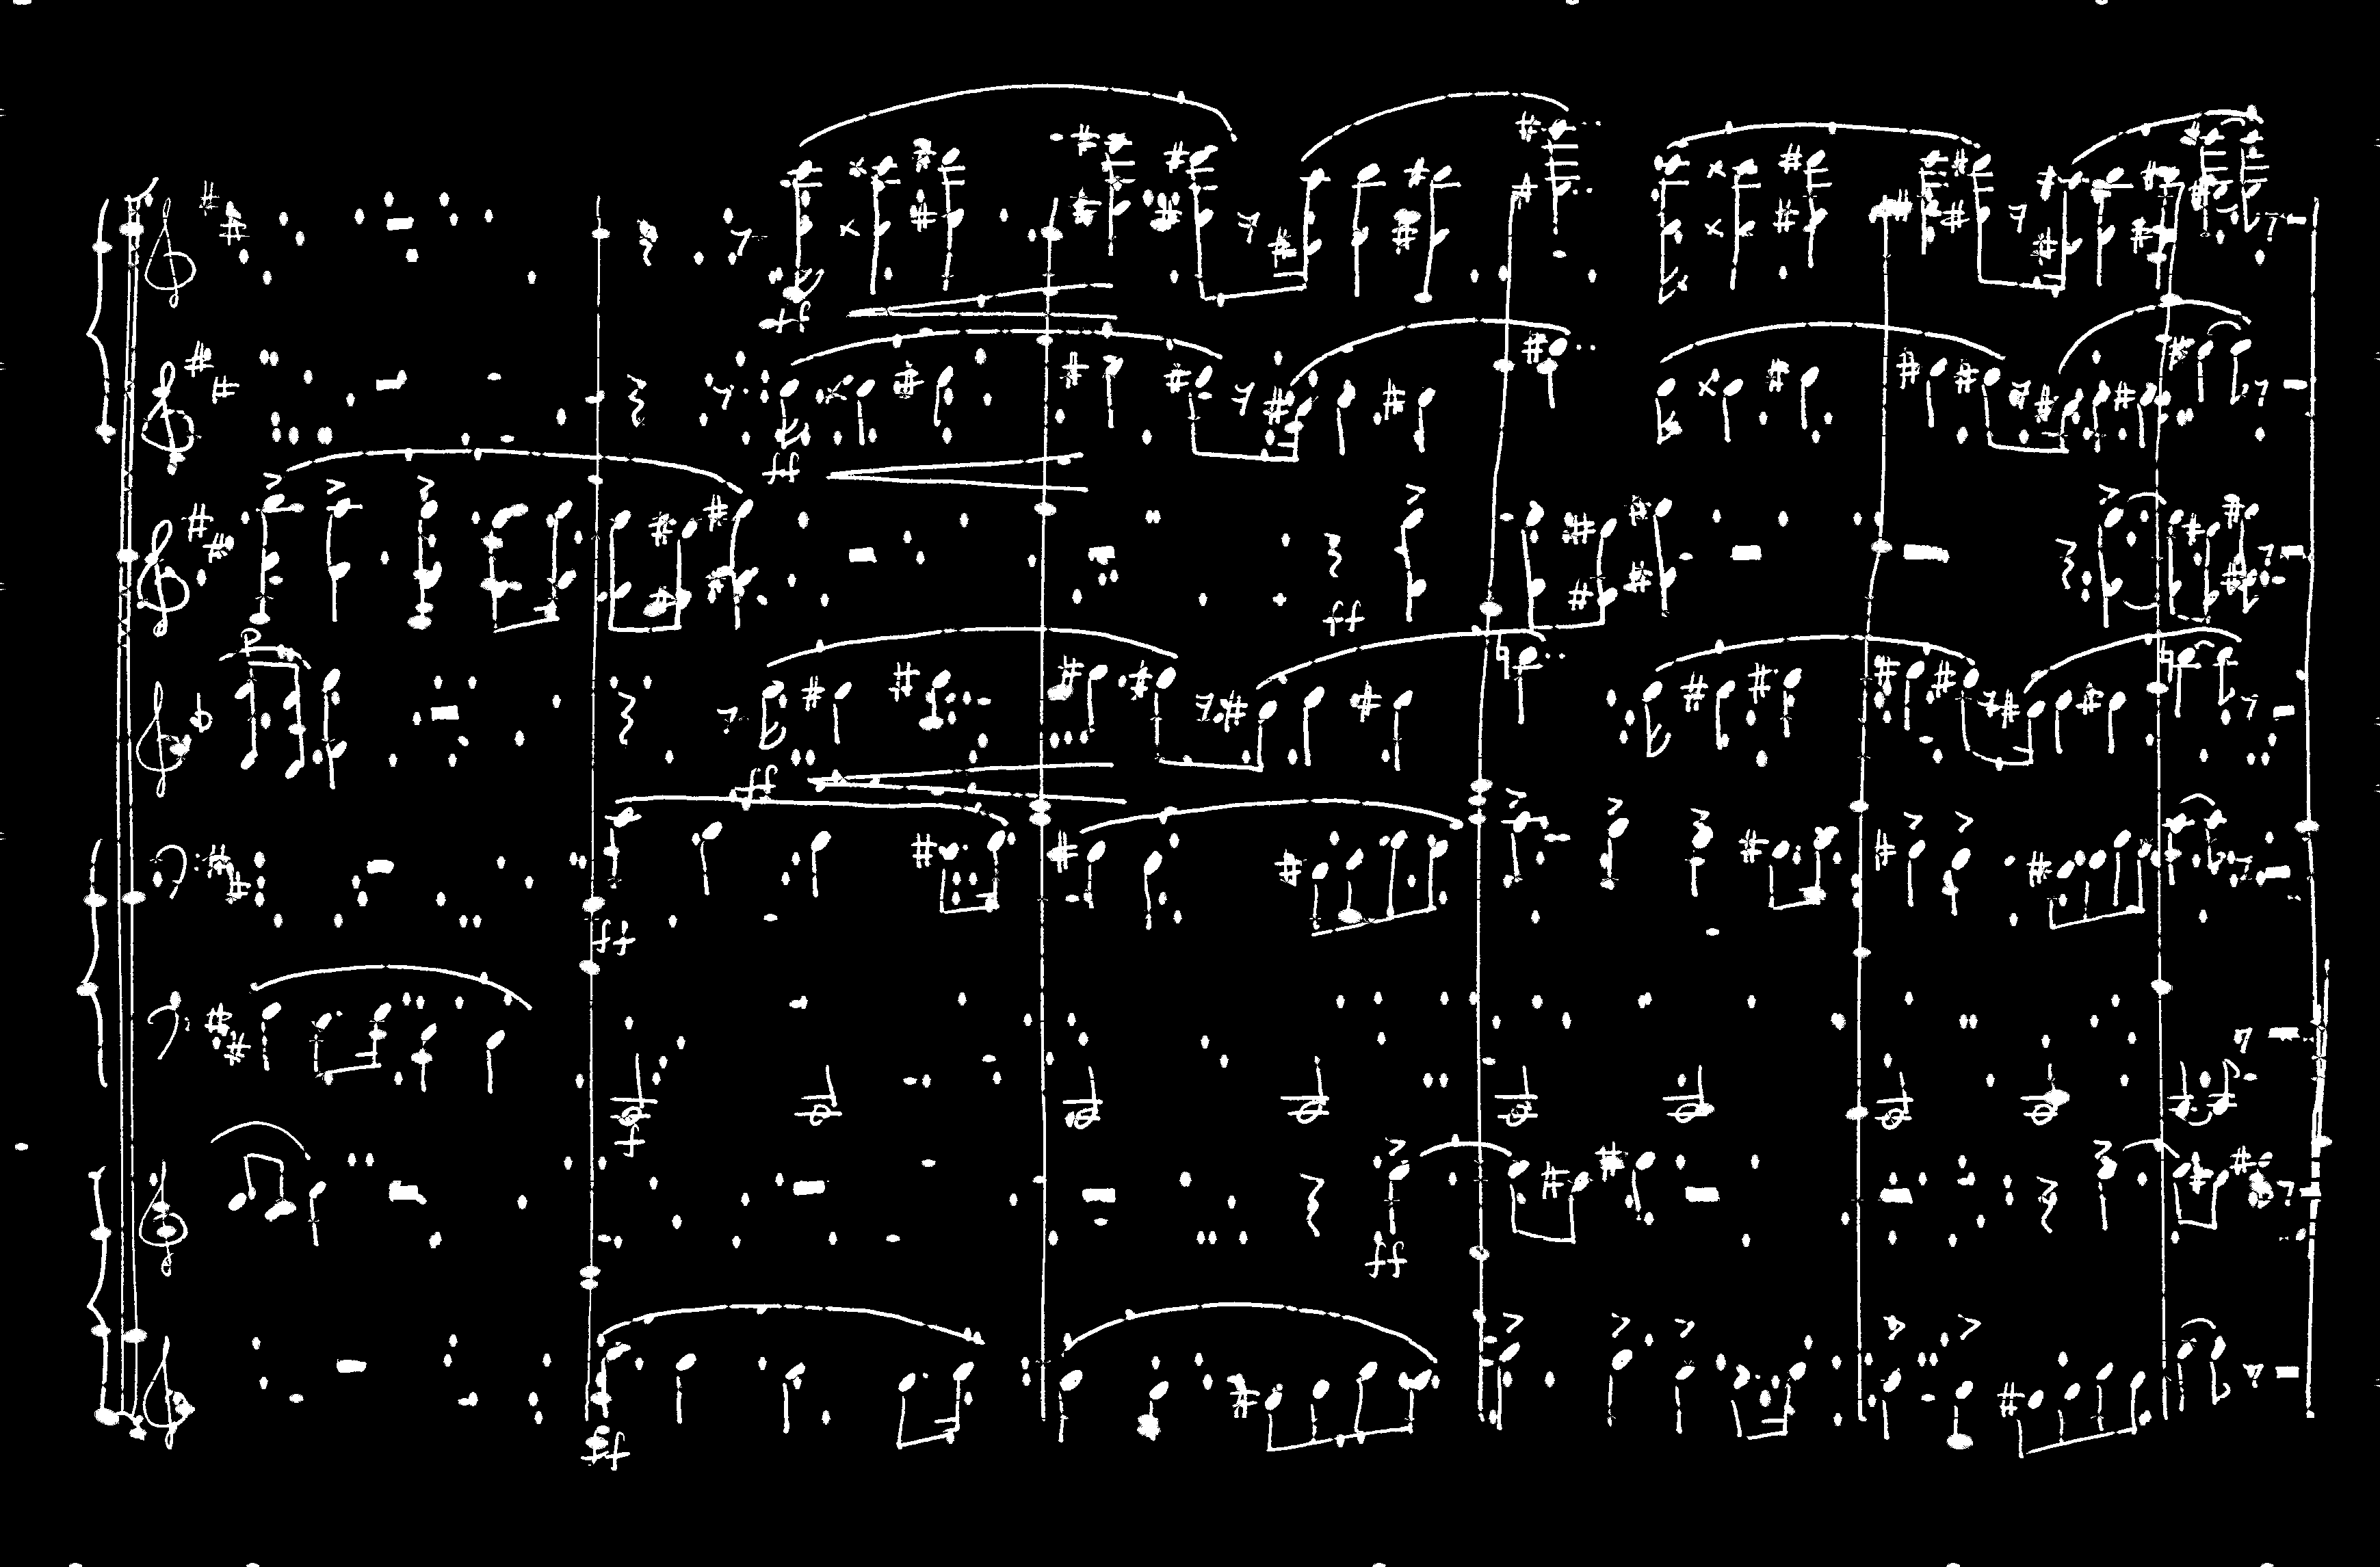 ff
ff
ff
P
ff
ff
f
ff
ff